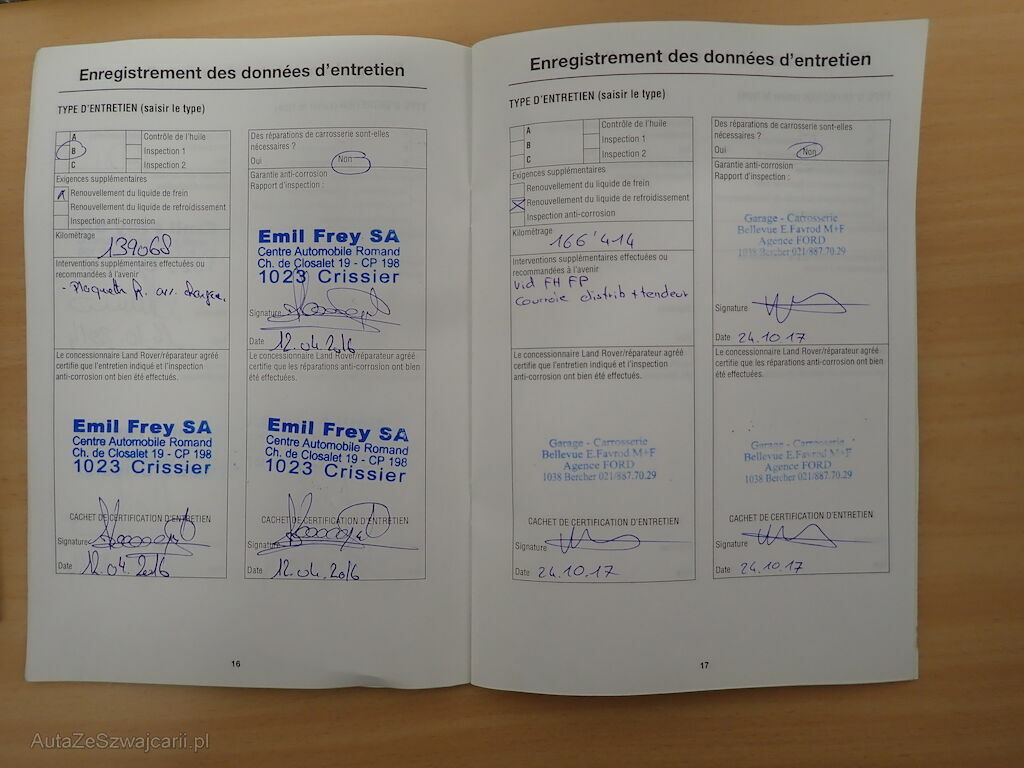 Enregistrement des données d'entretien
TYPE D'ENTRETIEN (saisir le type)
A
B
C
Contrôle de l'huile
Inspection 1
Inspection 2
Exigences supplémentaires
Renouvellement du liquide de frein
Renouvellement du liquide de refroidissement
Inspection anti-corrosion
Kilométrage
139068
Interventions supplémentaires effectuées ou
recommandées à l'avenir
- Plaquette fr. arr.
Des réparations de carrosserie sont-elles
nécessaires ?
Oui
Non
Garantie anti-corrosion
Rapport d'inspection :
Emil Frey SA
Centre Automobile Romand
Ch. de Closalet 19 - CP 198
1023 Crissier
Signature
Date 12.04.2016
Le concessionnaire Land Rover/réparateur agréé
certifie que l'entretien indiqué et l'inspection
anti-corrosion ont bien été effectués.
Emil Frey SA
Centre Automobile Romand
Ch. de Closalet 19 - CP 198
1023 Crissier
CACHET DE CERTIFICATION D'ENTRETIEN
Signature
Date 12.04.2016
Le concessionnaire Land Rover/réparateur agréé
certifie que les réparations anti-corrosion ont bien
été effectuées.
Emil Frey SA
Centre Automobile Romand
Ch. de Closalet 19 - CP 198
1023 Crissier
CACHET DE CERTIFICATION D'ENTRETIEN
Signature
Date 12.04.2016
16
Enregistrement des données d'entretien
TYPE D'ENTRETIEN (saisir le type)
A
B
C
Contrôle de l'huile
Inspection 1
Inspection 2
Exigences supplémentaires
Renouvellement du liquide de frein
Renouvellement du liquide de refroidissement
Inspection anti-corrosion
Kilométrage
166'414
Interventions supplémentaires effectuées ou
recommandées à l'avenir
vid FH FP
courroie distrib + tendeur
Des réparations de carrosserie sont-elles
nécessaires ?
Oui
Non
Garantie anti-corrosion
Rapport d'inspection :
Garage - Carrosserie
Bellevue E.Favrod M+F
Agence FORD
1038 Bercher 021/887.70.29
Signature
Date 24.10.17
Le concessionnaire Land Rover/réparateur agréé
certifie que l'entretien indiqué et l'inspection
anti-corrosion ont bien été effectués.
Garage - Carrosserie
Bellevue E.Favrod M+F
Agence FORD
1038 Bercher 021/887.70.29
CACHET DE CERTIFICATION D'ENTRETIEN
Signature
Date 24.10.17
Le concessionnaire Land Rover/réparateur agréé
certifie que les réparations anti-corrosion ont bien
été effectuées.
Garage - Carrosserie
Bellevue E.Favrod M+F
Agence FORD
1038 Bercher 021/887.70.29
CACHET DE CERTIFICATION D'ENTRETIEN
Signature
Date 24.10.17
17
AutaZeSzwajcarii.pl